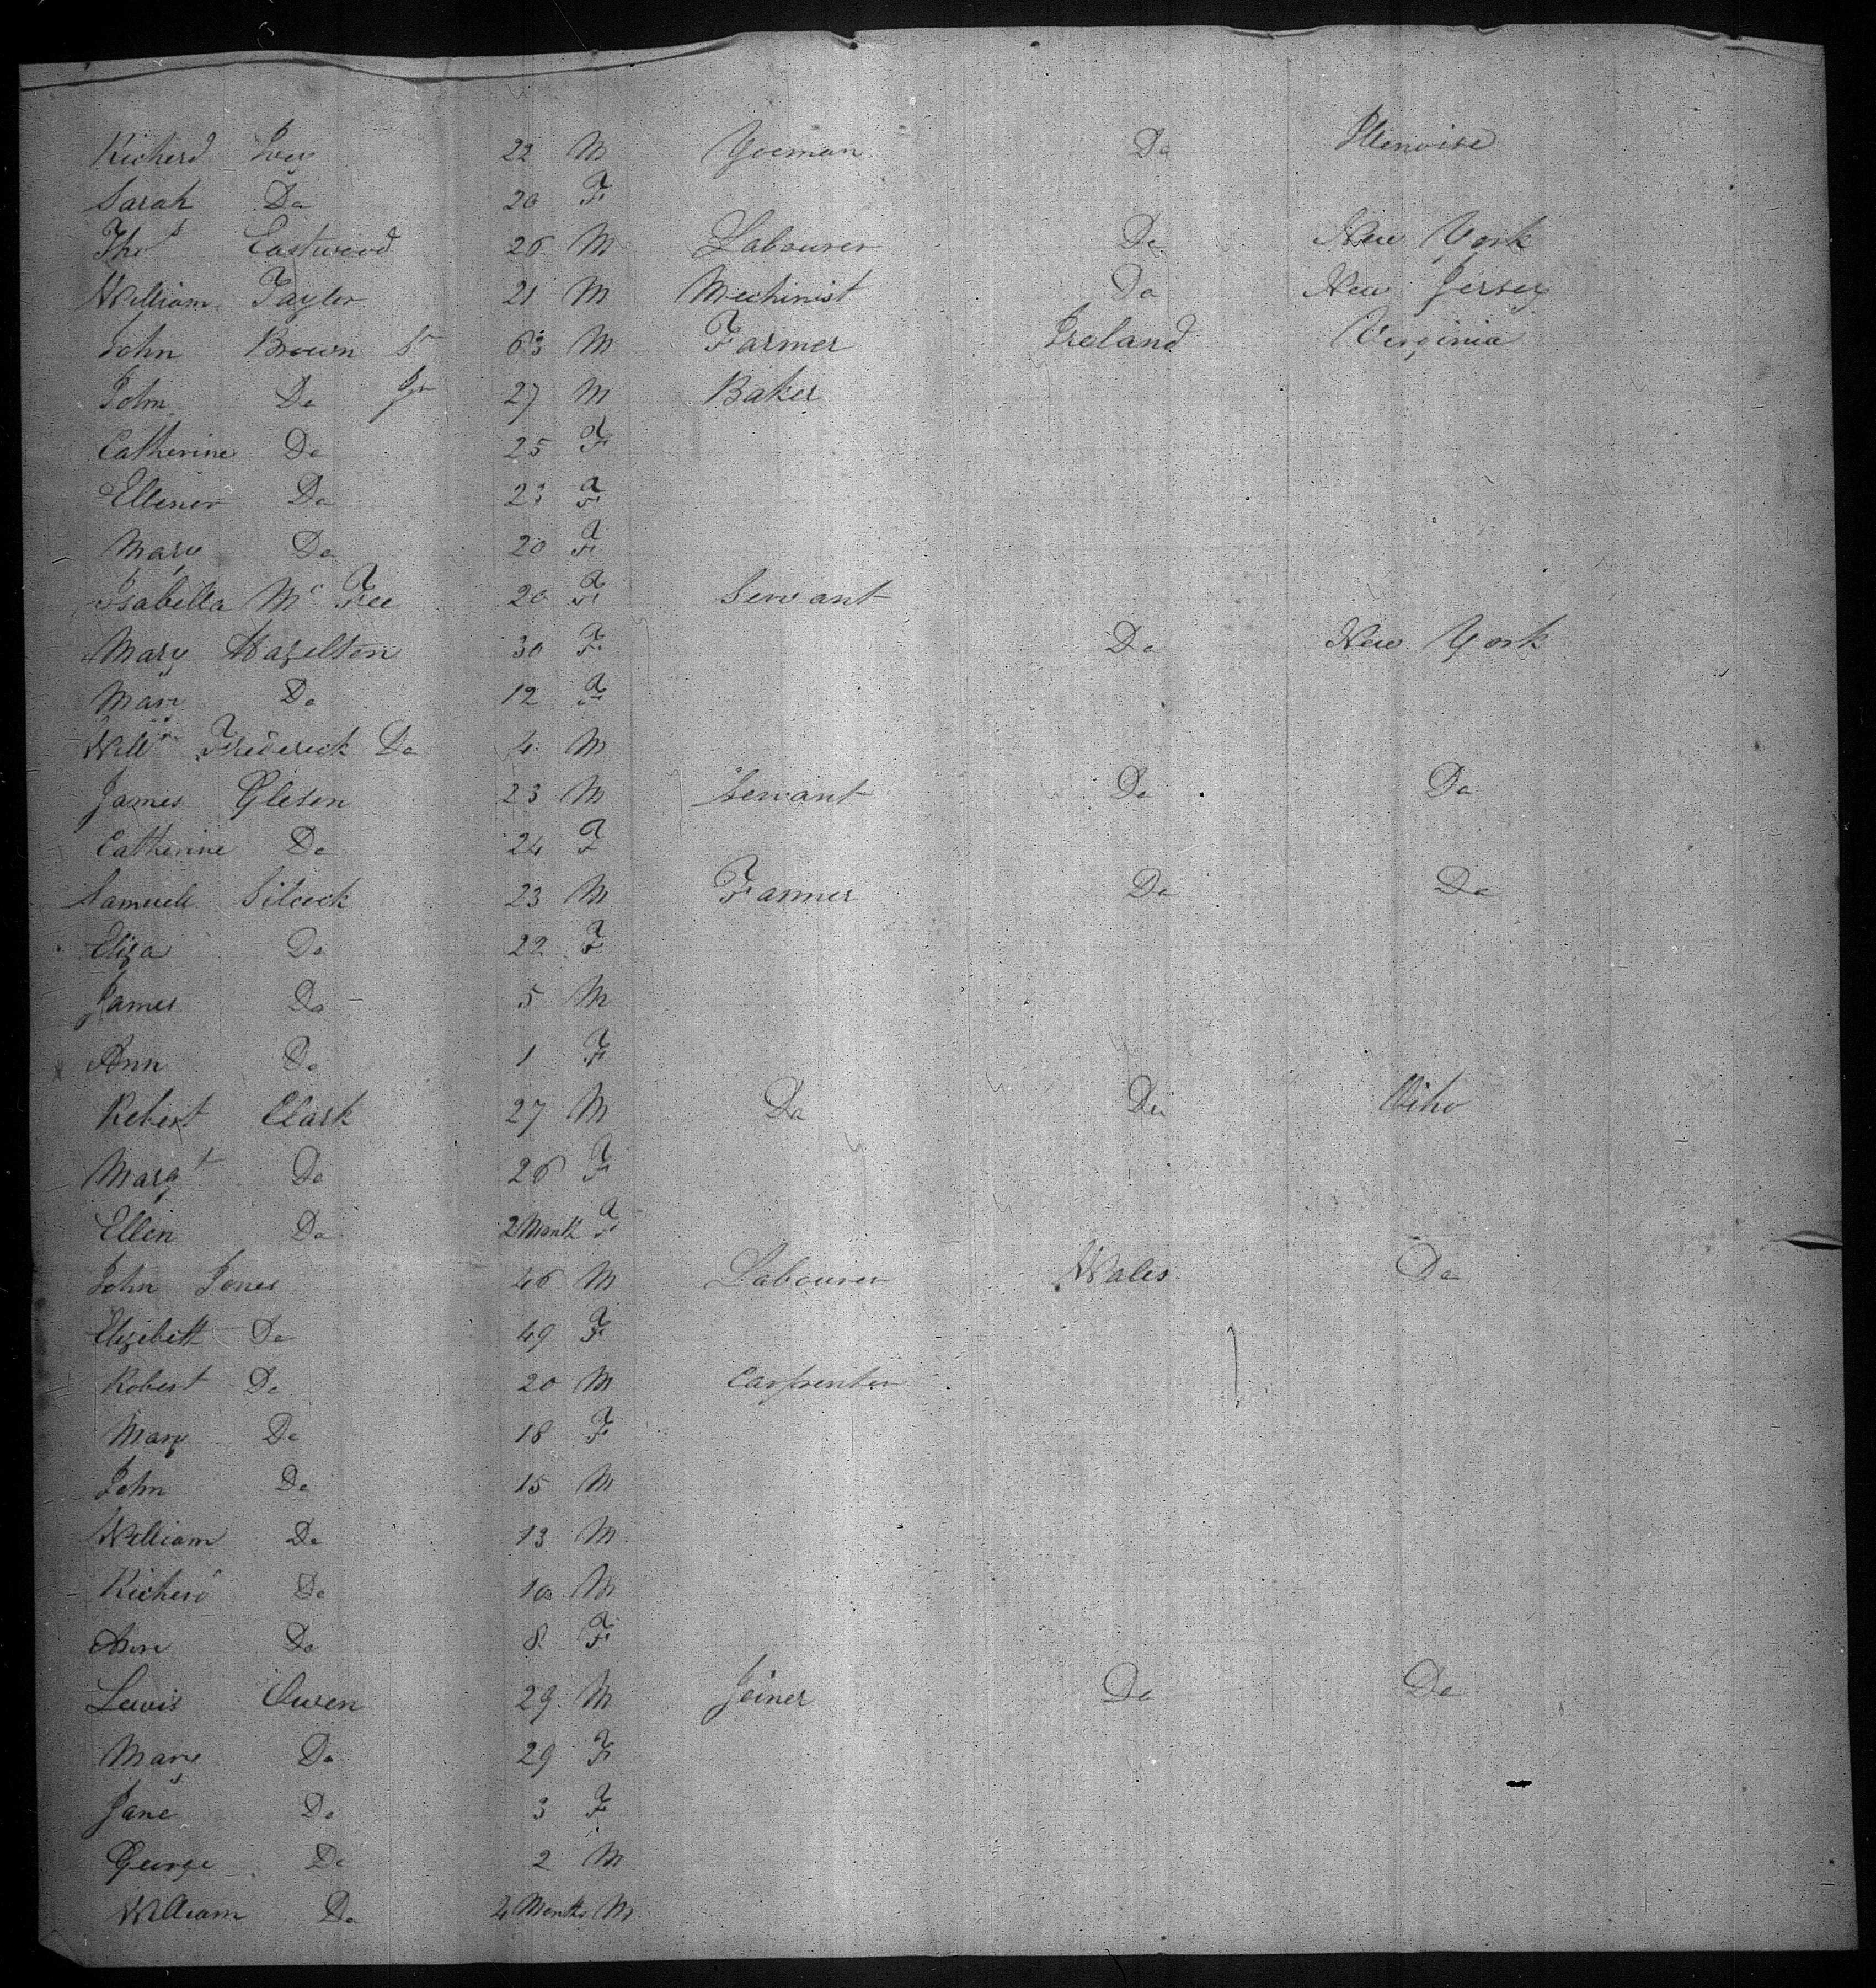 Richerd Ivey 22 M Yoeman Do Illenoise
Sarah Do 20 F
Thos Eastwood 26 M Labourer Do New York
William Taylor 21 M Mechinist Do New Jersey
John Brown Sr 63 M Farmer Ireland Virginia
John Do Jr 27 M Baker
Catherine Do 25 F
Ellenor Do 23 F
Mary Do 20 F
Isabella Mc Fee 20 F Servant
Mary Hazelton 30 F Do New York
Mary Do 12 F
Willm Frederick Do 4 M
James Gleson 23 M Servant Do Do
Catherine Do 24 F
Samuell Silcock 23 M Farmer Do Do
Eliza Do 22 F
James Do 5 M
Ann Do 1 F
Robert Clark 27 M Do Do Oiho
Margt Do 26 F
Ellen Do 2 Month F
John Jones 46 M Labourer Wales Do
Elizibeth Do 49 F
Robert Do 20 M Carpenter
Mary Do 18 F
John Do 15 M
William Do 13 M
Richerd Do 10 M
Ann Do 8 F
Lewis Owen 29 M Joiner Do Do
Mary Do 29 F
Jane Do 3 F
George Do 2 M
William Do 4 Months M